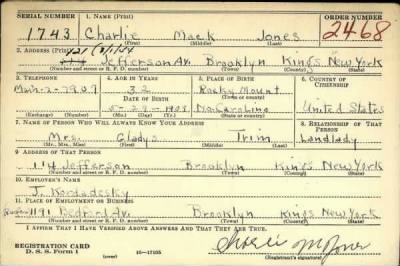 SERIAL NUMBER 1. NAME (Print) ORDER NUMBER
1743 Charlie Mack Jones 2468
(First) (Middle) (Last)
2. ADDRESS (Print) 421
Jefferson Av. Brooklyn Kings New York
(Number and street or R. F. D. number) (Town) (County) (State)
3. TELEPHONE 4. AGE IN YEARS 5. PLACE OF BIRTH 6. COUNTRY OF CITIZENSHIP
Main-2-7909 32 Rocky Mount
DATE OF BIRTH (Town or county) United States
1908 No. Carolina
(Exchange) (Number) (Mo.) (Day) (Yr.) (State or country)
7. NAME OF PERSON WHO WILL ALWAYS KNOW YOUR ADDRESS 8. RELATIONSHIP OF THAT PERSON
Mrs. Gladys Trim Landlady
(Mr., Mrs., Miss) (First) (Middle) (Last)
9. ADDRESS OF THAT PERSON
114 Jefferson Brooklyn Kings New York
(Number and street or R. F. D. number) (Town) (County) (State)
10. EMPLOYER'S NAME
J. Kordadesky
11. PLACE OF EMPLOYMENT OR BUSINESS
1191 Bedford Av. Brooklyn Kings New York
(Number and street or R. F. D. number) (Town) (County) (State)
I AFFIRM THAT I HAVE VERIFIED ABOVE ANSWERS AND THAT THEY ARE TRUE.
REGISTRATION CARD
D. S. S. Form 1 (over) 16-17105 (Registrant's signature)